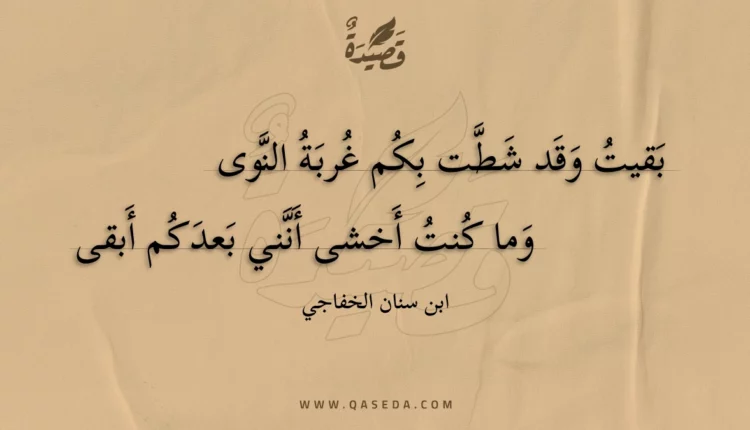 قَصِيدَةٌ
بَقيتُ وَقَد شَطَّت بِكُم غُربَةُ النَّوى
وَما كُنتُ أَخشى أَنَّني بَعدَكُم أَبقى
ابن سنان الخفاجي
WWW.QASEDA.COM